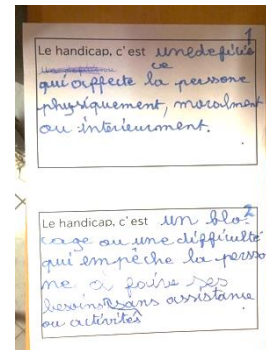 1
Le handicap, c'est une déficie
ce
qui affecte la persone
physiquement, moralment
ou interieurment.
2
Le handicap, c'est un blo-
cage ou une difficulté
qui empêche la perso
ne à faire ses
besoins sans assistance
ou activités